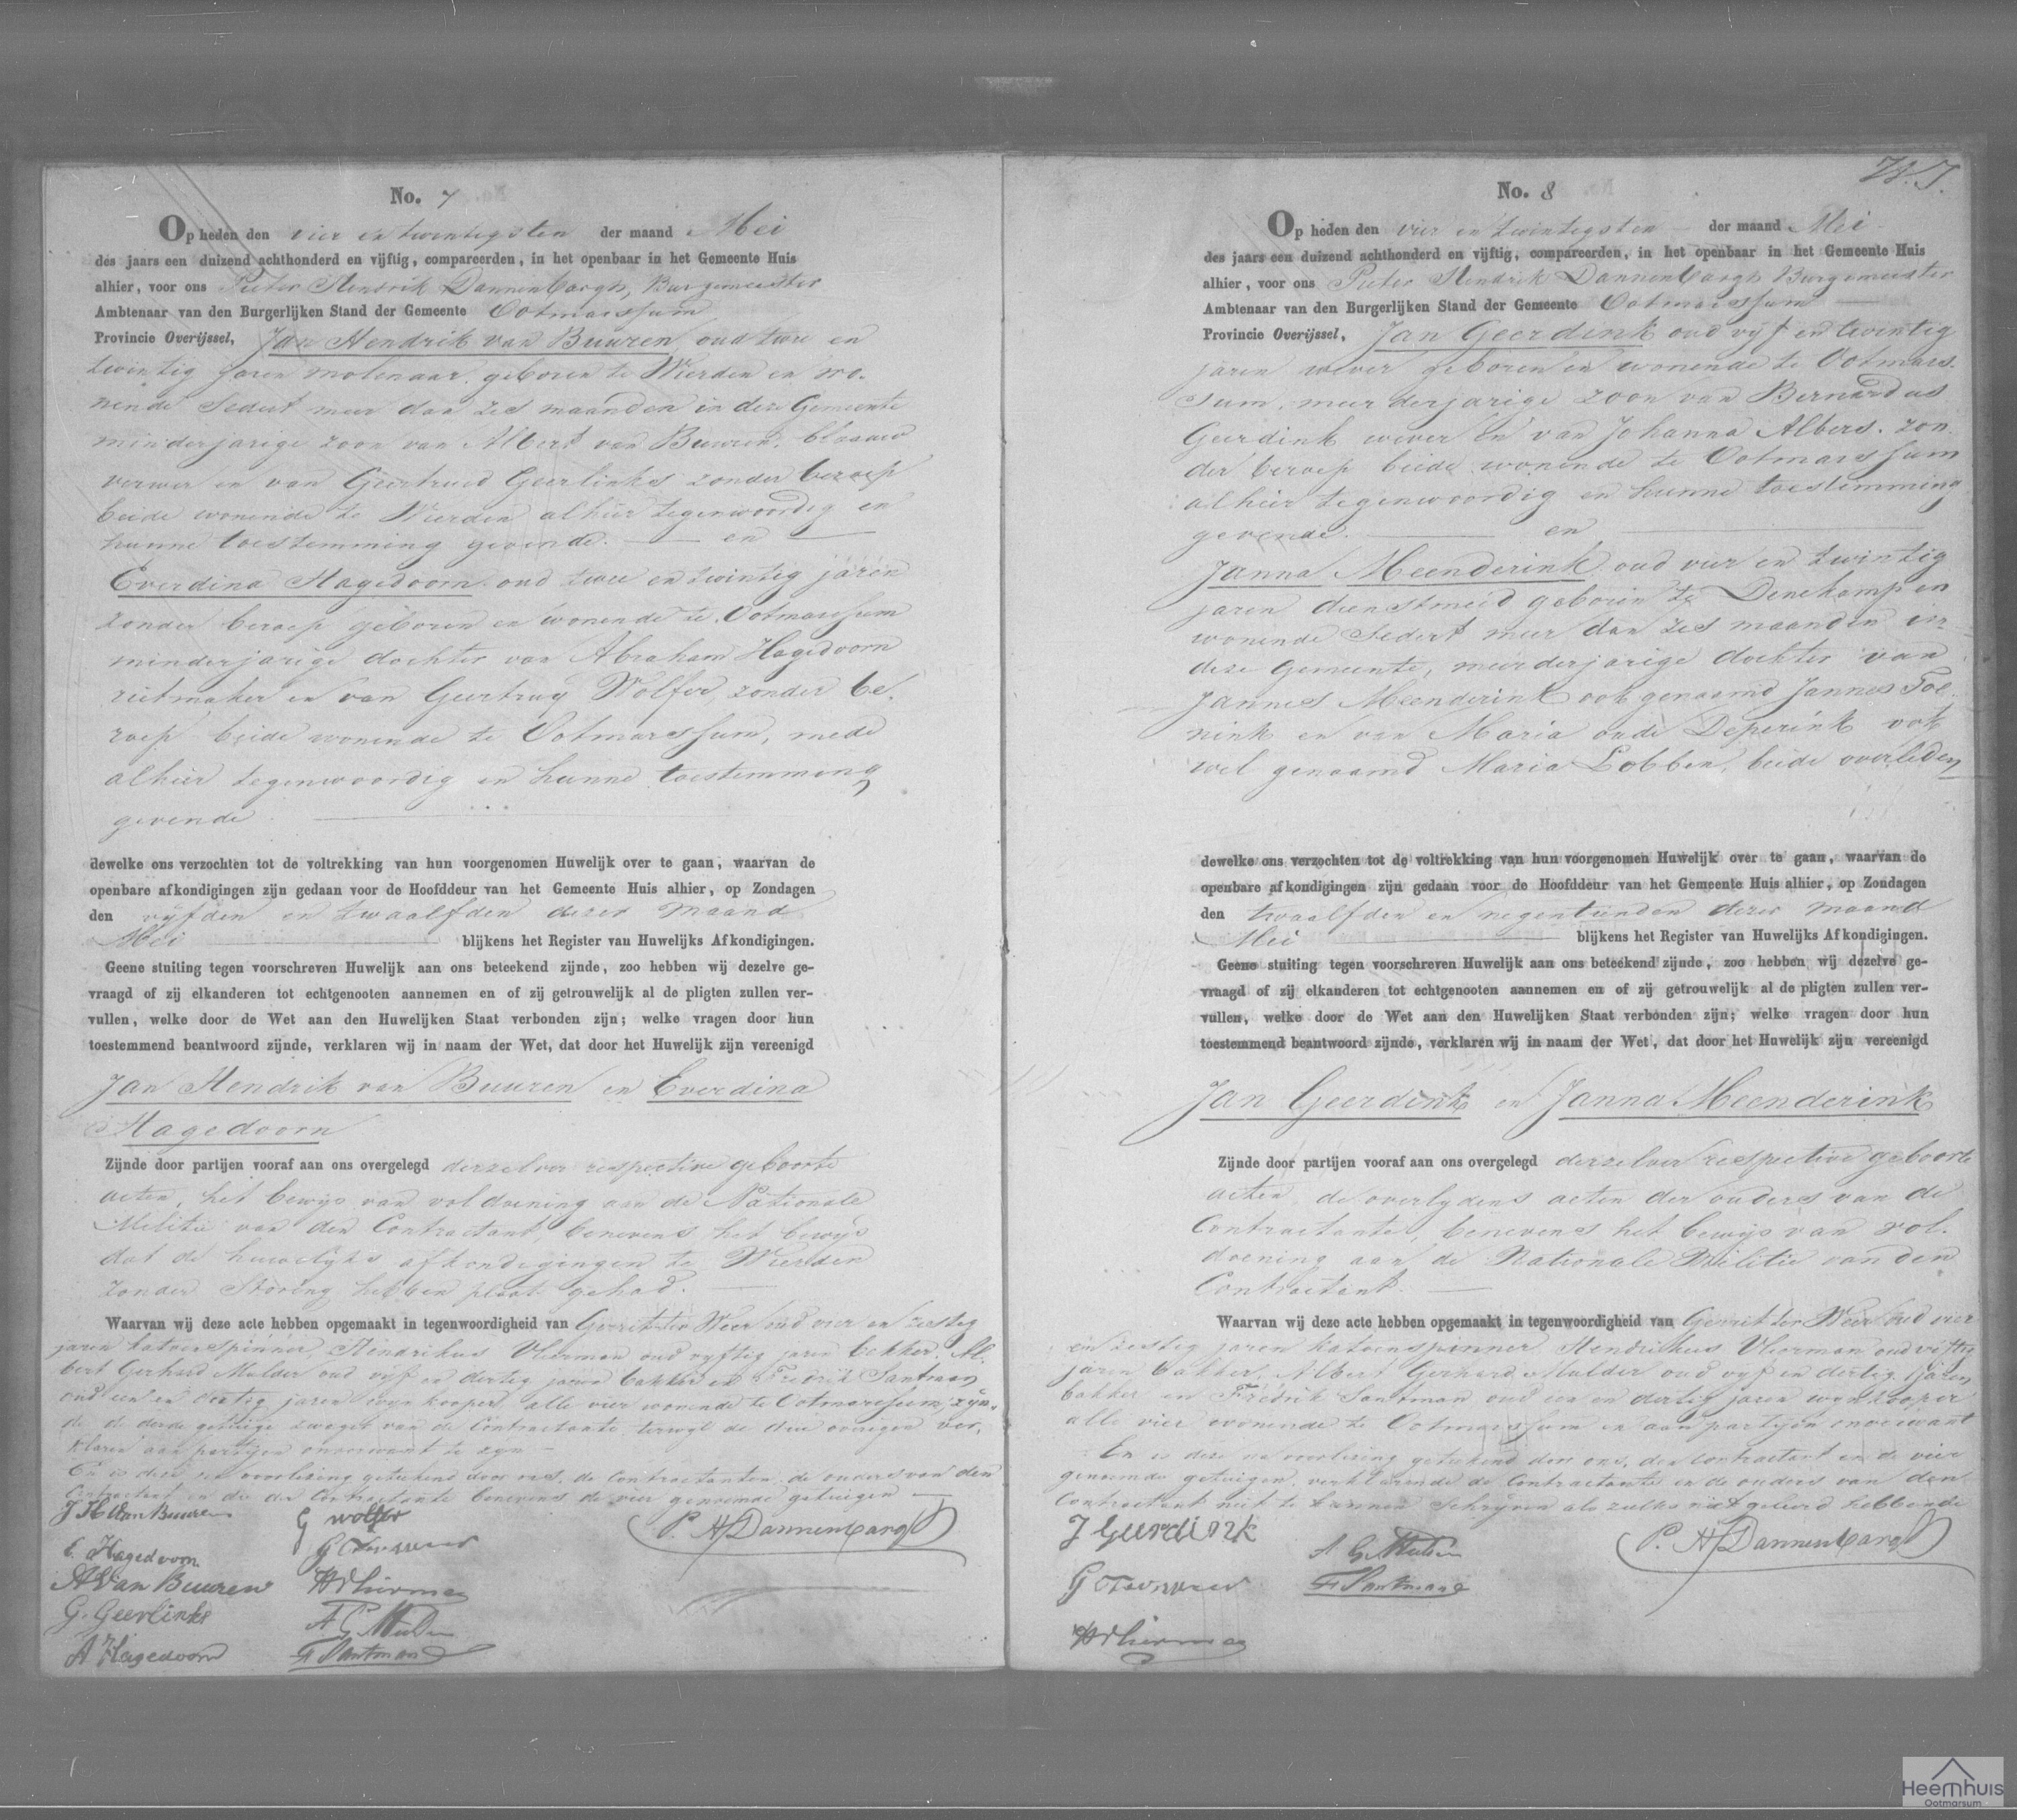 No. 7
Op heden den vier en twintigsten der maand Mei
des jaars een duizend achthonderd en vijftig, compareerden, in het openbaar in het Gemeente Huis
alhier, voor ons Pieter Hendrik Dannenbargh, Burgemeester
Ambtenaar van den Burgerlijken Stand der Gemeente Ootmarssum
Provincie Overijssel, Jan Hendrik van Buuren oud twee en
twintig jaren molenaar, geboren te Wierden en wo-
nende sedert meer dan zes maanden in deze Gemeente
minderjarige zoon van Albert van Buuren, blaauw
verwer en van Geertruid Geerlinks zonder beroep
beide wonende te Wierden alhier tegenwoordig en
hunne toestemming gevende. — en —
Everdina Hagedoorn oud twee en twintig jaren
zonder beroep geboren en wonende te Ootmarssum
minderjarige dochter van Abraham Hagedoorn
rietmaker en van Geertruy Wolfer, zonder be-
roep beide wonende te Ootmarssum, mede
alhier tegenwoordig en hunne toestemming
gevende.
dewelke ons verzochten tot de voltrekking van hun voorgenomen Huwelijk over te gaan, waarvan de
openbare afkondigingen zijn gedaan voor de Hoofddeur van het Gemeente Huis alhier, op Zondagen
den vijfden en twaalfden dezer maand
Mei blijkens het Register van Huwelijks Afkondigingen.
Geene stuiting tegen voorschreven Huwelijk aan ons beteekend zijnde, zoo hebben wij dezelve ge-
vraagd of zij elkanderen tot echtgenooten aannemen en of zij getrouwelijk al de pligten zullen ver-
vullen, welke door de Wet aan den Huwelijken Staat verbonden zijn; welke vragen door hun
toestemmend beantwoord zijnde, verklaren wij in naam der Wet, dat door het Huwelijk zijn vereenigd
Jan Hendrik van Buuren en Everdina
Hagedoorn
Zijnde door partijen vooraf aan ons overgelegd derzelver respective geboorte
acten, het bewijs van voldoening aan de Nationale
Militie van den Contractant, benevens het bewijs
dat de huwelijks afkondigingen te Wierden
zonder storing hebben plaats gehad.
Waarvan wij deze acte hebben opgemaakt in tegenwoordigheid van Gerrit ter Weer oud vier en zestig
jaren katoenspinner, Hendrikus Vlierman oud vyftig jaren bakker, Al-
bert Gerhard Mulder oud vyf en dertig jaren bakker en Fredrik Santman
oud een en dertig jaren wynkooper alle vier wonende te Ootmarssum, zyn-
de de derde getuige zwager van de Contractante, terwyl de drie overigen ver-
klaren aan partijen onverwant te zyn —
En is deze na voorlezing geteekend door ons, de Contractanten, de ouders van den
Contractant en die der Contractante benevens de vier genoemde getuigen —
J H van Buuren
G wolfer
P. H Dannenbargh
E. Hagedoorn
G Terweer
A van Buuren
H Vlierman
G. Geerlinks
A G Mulder
A Hagedoorn
F Santman
W. J.
No. 8
Op heden den vier en twintigsten der maand Mei
des jaars een duizend achthonderd en vijftig, compareerden, in het openbaar in het Gemeente Huis
alhier, voor ons Pieter Hendrik Dannenbargh Burgemeester
Ambtenaar van den Burgerlijken Stand der Gemeente Ootmarssum
Provincie Overijssel, Jan Geerdink oud vyf en twintig
jaren wever geboren en wonende te Ootmars-
sum, meerderjarige zoon van Bernardus
Geerdink wever en van Johanna Albers, zon
der beroep beide wonende te Ootmarssum
alhier tegenwoordig en hunne toestemming
gevende. — en —
Janna Meenderink oud vier en twintig
jaren dienstmeid geboren te Denekamp en
wonende sedert meer dan zes maanden in
deze Gemeente, meerderjarige dochter van
Jannes Meenderink ook genaamd Jannes Toe-
nink en van Maria oude Deperink ook
wel genaamd Maria Lobben, beide overleden
dewelke ons verzochten tot de voltrekking van hun voorgenomen Huwelijk over te gaan, waarvan de
openbare afkondigingen zijn gedaan voor de Hoofddeur van het Gemeente Huis alhier, op Zondagen
den twaalfden en negentienden dezer maand
Mei blijkens het Register van Huwelijks Afkondigingen.
Geene stuiting tegen voorschreven Huwelijk aan ons beteekend zijnde, zoo hebben wij dezelve ge-
vraagd of zij elkanderen tot echtgenooten aannemen en of zij getrouwelijk al de pligten zullen ver-
vullen, welke door de Wet aan den Huwelijken Staat verbonden zijn; welke vragen door hun
toestemmend beantwoord zijnde, verklaren wij in naam der Wet, dat door het Huwelijk zijn vereenigd
Jan Geerdink en Janna Meenderink
Zijnde door partijen vooraf aan ons overgelegd derzelver respective geboorte
acten, de overlydens acten der ouders van de
Contractante, benevens het bewijs van vol-
doening aan de Nationale Militie van den
Contractant. —
Waarvan wij deze acte hebben opgemaakt in tegenwoordigheid van Gerrit ter Weer oud vier
en zestig jaren katoenspinner, Hendrikus Vlierman oud vyftig
jaren bakker, Albert Gerhard Mulder oud vyf en dertig jaren
bakker en Fredrik Santman oud een en dertig jaren wynkooper
alle vier wonende te Ootmarssum en aan partijen onverwant
En is deze na voorlezing geteekend door ons, den contractant en de vier
genoemde getuigen, verklarende de Contractante en de ouders van den
Contractant niet te kunnen schryven als zulks niet geleerd hebbende
J Geerdink
A G Mulder
P. H Dannenbargh
G Terweer
F Santman
H Vlierman
Heemhuis
Ootmarsum